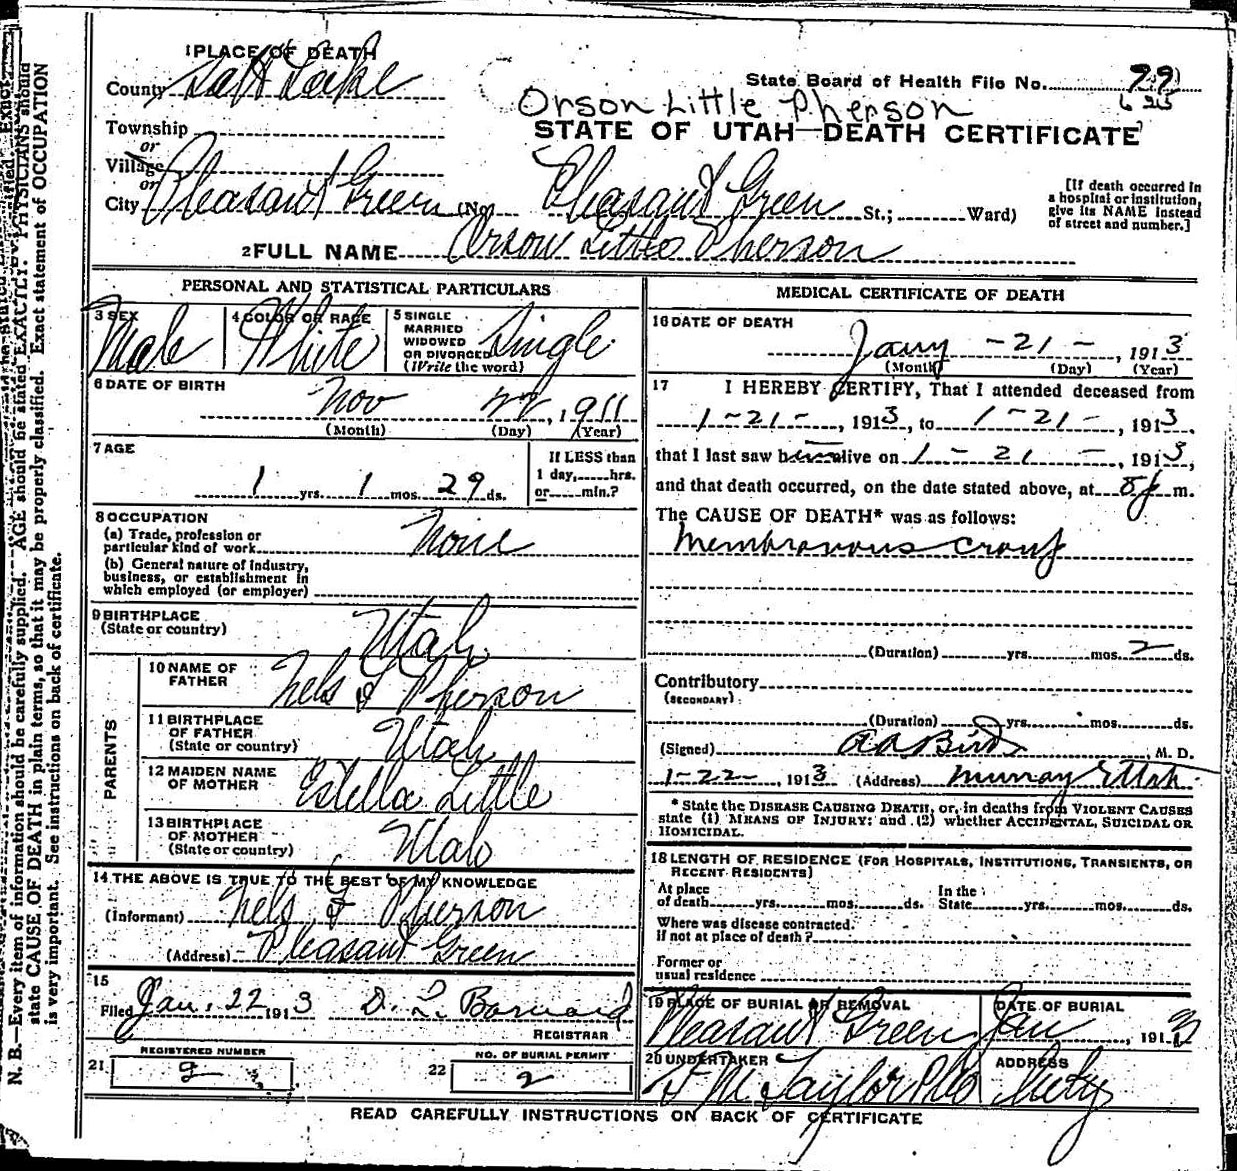 1 PLACE OF DEATH
County Salt Lake
State Board of Health File No. 99
625
Orson Little Pherson
STATE OF UTAH—DEATH CERTIFICATE
Township
or
Village
or
City Pleasant Green (No. Pleasant Green St.; Ward)
[If death occurred in
a hospital or institution,
give its NAME instead
of street and number.]
2 FULL NAME Orson Little Pherson
PERSONAL AND STATISTICAL PARTICULARS
3 SEX
Male
4 COLOR OR RACE
White
5 SINGLE
MARRIED
WIDOWED
OR DIVORCED
(Write the word)
Single
6 DATE OF BIRTH
Nov 22, 1911
(Month) (Day) (Year)
7 AGE
1 yrs. 1 mos. 29 ds.
If LESS than
1 day, hrs.
or min.?
8 OCCUPATION
(a) Trade, profession or
particular kind of work None
(b) General nature of industry,
business, or establishment in
which employed (or employer)
9 BIRTHPLACE
(State or country)
Utah
PARENTS
10 NAME OF
FATHER
Nels L Pherson
11 BIRTHPLACE
OF FATHER
(State or country)
Utah
12 MAIDEN NAME
OF MOTHER
Estella Little
13 BIRTHPLACE
OF MOTHER
(State or country)
Utah
14 THE ABOVE IS TRUE TO THE BEST OF MY KNOWLEDGE
(Informant) Nels L Pherson
(Address) Pleasant Green
15
Filed Jan. 22 1913 D. L. Barnard
REGISTRAR
21 REGISTERED NUMBER
2
22 NO. OF BURIAL PERMIT
2
MEDICAL CERTIFICATE OF DEATH
16 DATE OF DEATH
Jany - 21 - , 1913
(Month) (Day) (Year)
17 I HEREBY CERTIFY, That I attended deceased from
1-21-, 1913, to 1-21-, 1913
that I last saw him alive on 1-21-, 1913,
and that death occurred, on the date stated above, at 8 p m.
The CAUSE OF DEATH* was as follows:
Membranous croup
(Duration) yrs. mos. 2 ds.
Contributory
(SECONDARY)
(Duration) yrs. mos. ds.
(Signed) A A Bird M. D.
1-22-, 1913 (Address) Murray Utah
* State the DISEASE CAUSING DEATH, or, in deaths from VIOLENT CAUSES
state (1) MEANS OF INJURY; and (2) whether ACCIDENTAL, SUICIDAL OR
HOMICIDAL.
18 LENGTH OF RESIDENCE (FOR HOSPITALS, INSTITUTIONS, TRANSIENTS, OR
RECENT RESIDENTS)
At place
of death yrs. mos. ds.
In the
State yrs. mos. ds.
Where was disease contracted.
If not at place of death?
Former or
usual residence
19 PLACE OF BURIAL OR REMOVAL
Pleasant Green
DATE OF BURIAL
Jan , 1913
20 UNDERTAKER
M. Taylor
ADDRESS
City
READ CAREFULLY INSTRUCTIONS ON BACK OF CERTIFICATE
N. B.—Every item of information should be carefully supplied. AGE should be stated EXACTLY. PHYSICIANS should
state CAUSE OF DEATH in plain terms, so that it may be properly classified. Exact statement of OCCUPATION
is very important. See instructions on back of certificate.